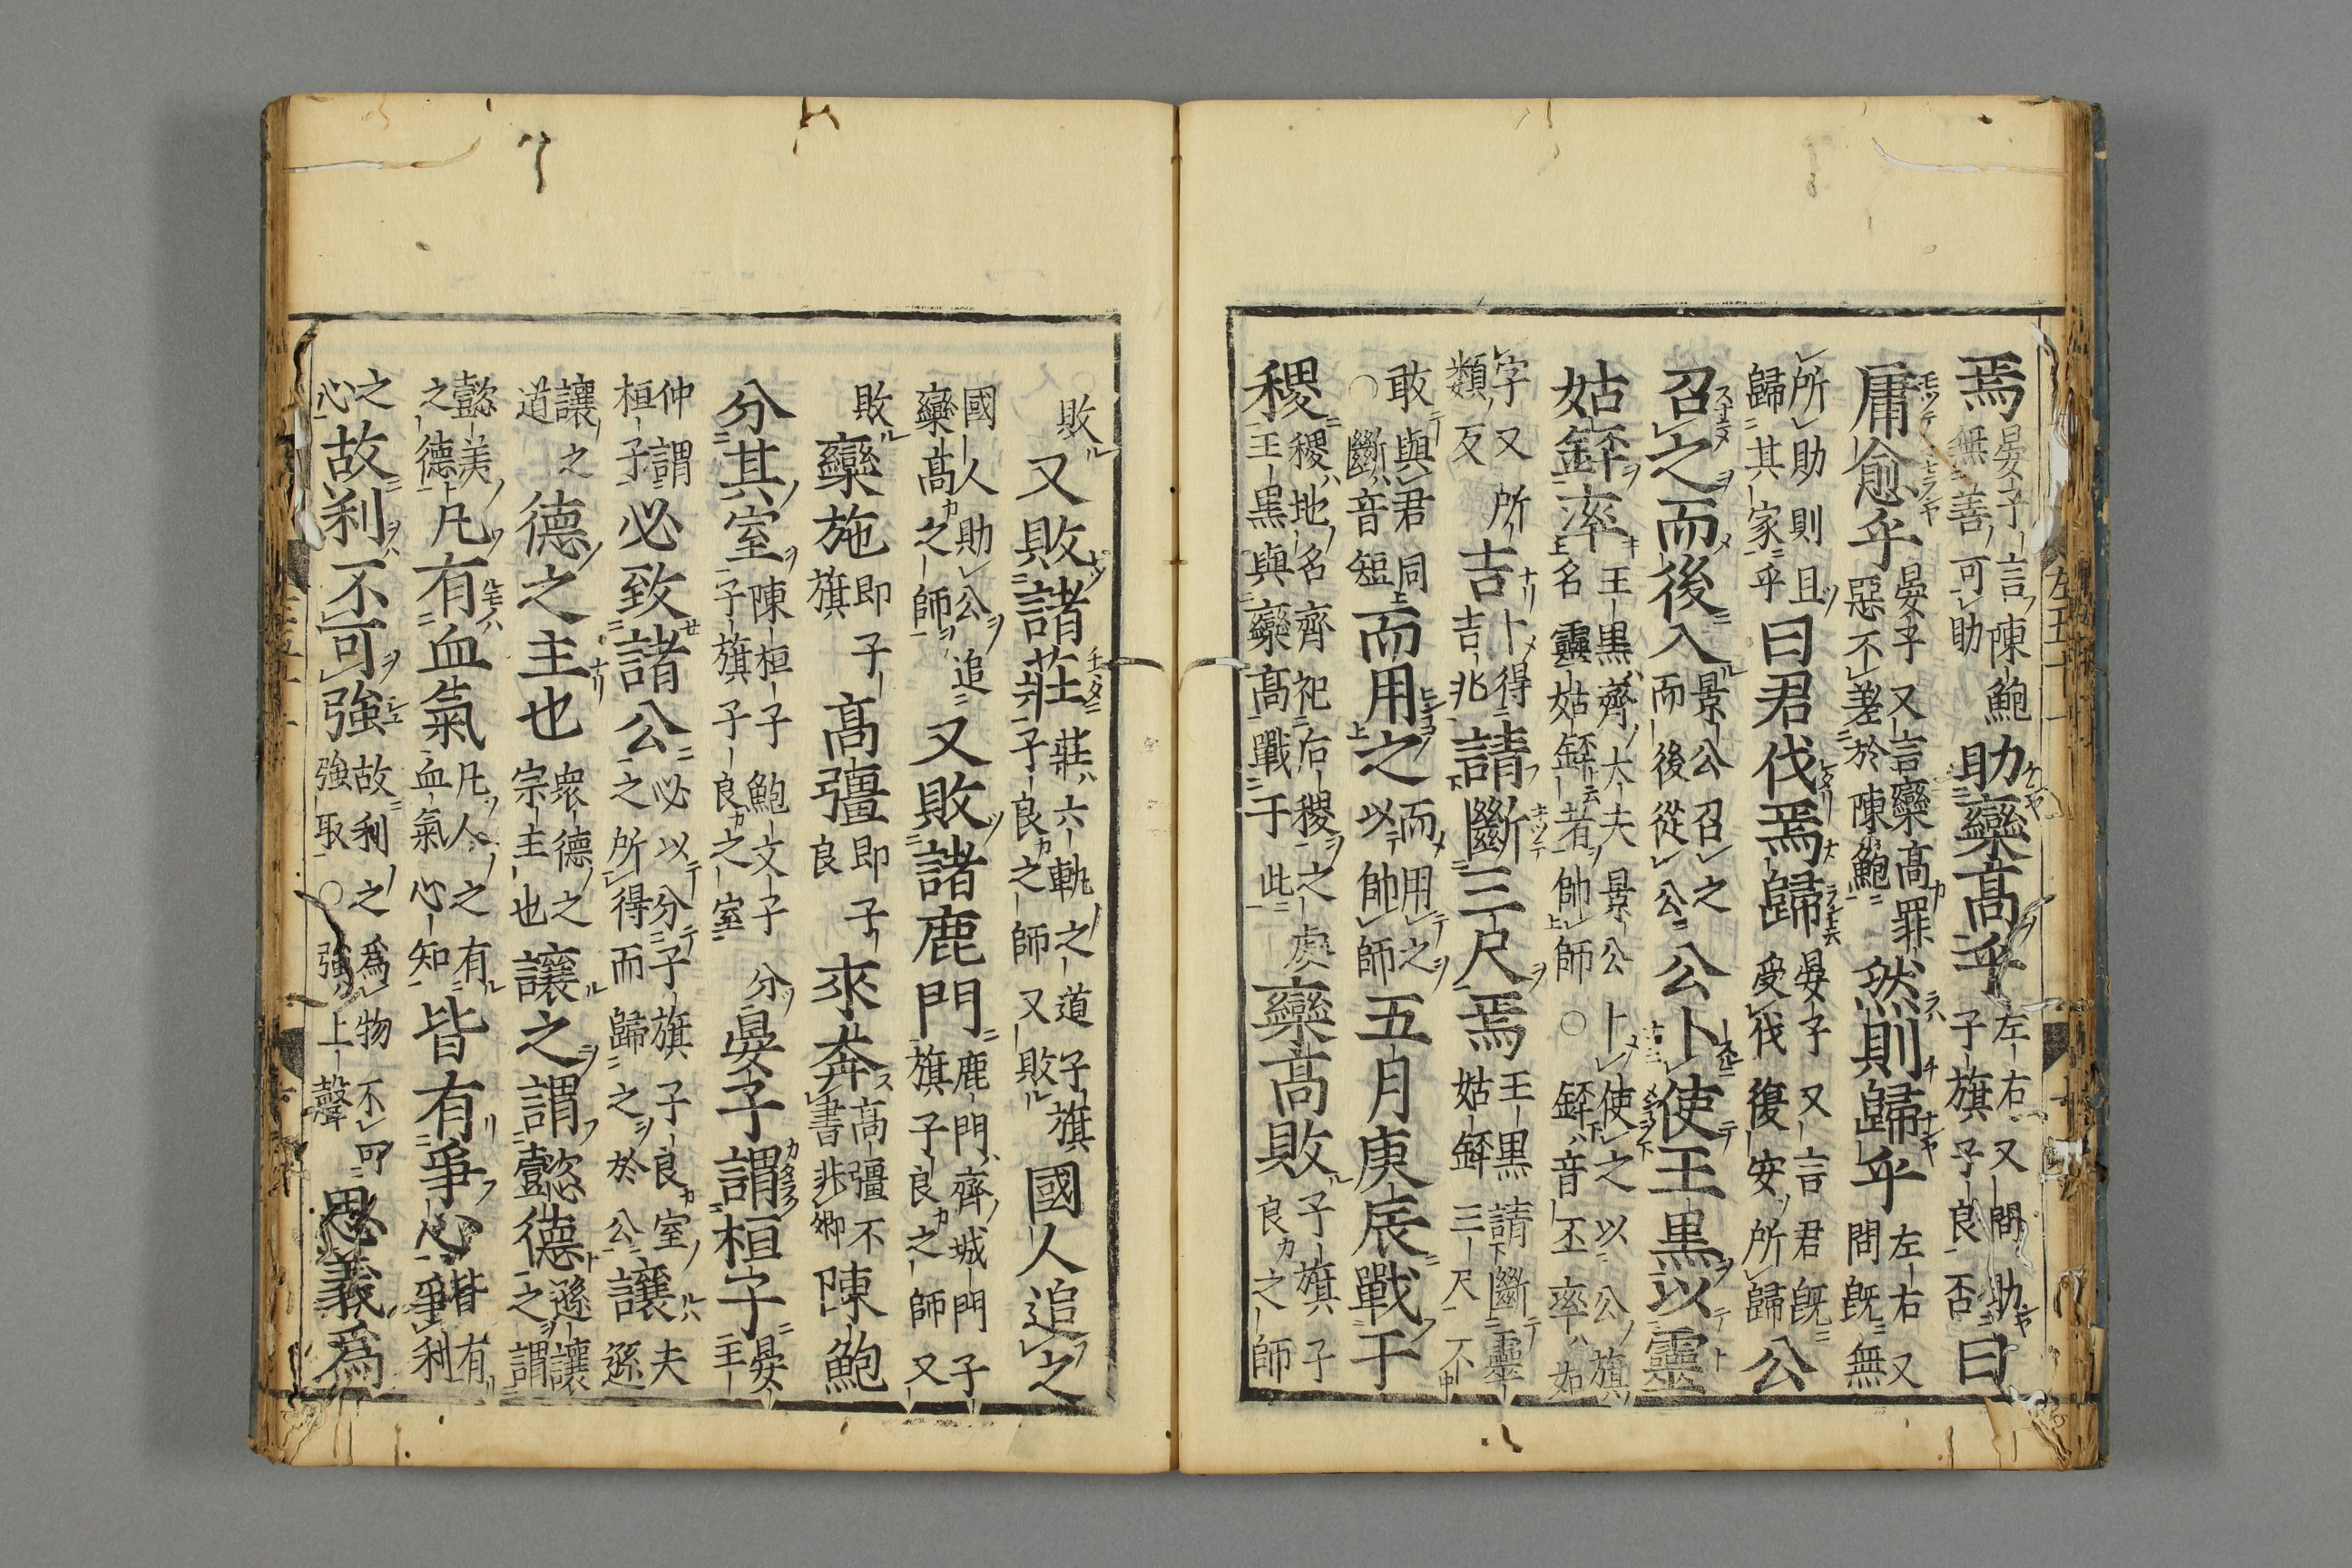 焉晏子言陳鮑無善可助助欒高乎左右又問助子旗子良否曰
庸愈乎晏子又言欒高罪惡不差於陳鮑然則歸乎左右又問既無
所助則且歸其家乎曰君伐焉歸晏子又言君既受伐復安所歸公
召之而後入景公召之而後從公公卜使王黑以靈
姑銔率王黑齊大夫景公卜使之以公旗名靈姑銔者帥師○銔音丕率如
字又所類反吉卜得吉兆請斷三尺焉王黑請斷靈姑銔三尺不
敢與君同○斷音短而用之而用之以帥師五月庚辰戰于
稷稷地名齊祀后稷之處王黑與欒高戰于此欒高敗子旗子良之師
敗又敗諸莊莊六軌之道子旗子良之師又敗國人追之
國人助公追欒高之師又敗諸鹿門鹿門齊城門子旗子良之師又
敗欒施即子旗高彊即子良來奔高彊不書非卿陳鮑
分其室陳桓子鮑文子分子旗子良之室晏子謂桓子晏主
仲謂桓子必致諸公必以分子旗子良室之所得而歸之於公讓夫遜
讓之道德之主也衆德之宗主也讓之謂懿德遜讓之謂
懿美之德凡有血氣凡人之有血氣心知皆有爭心皆有爭利
之心故利不可強故利之爲物不可強取○強上聲思義爲